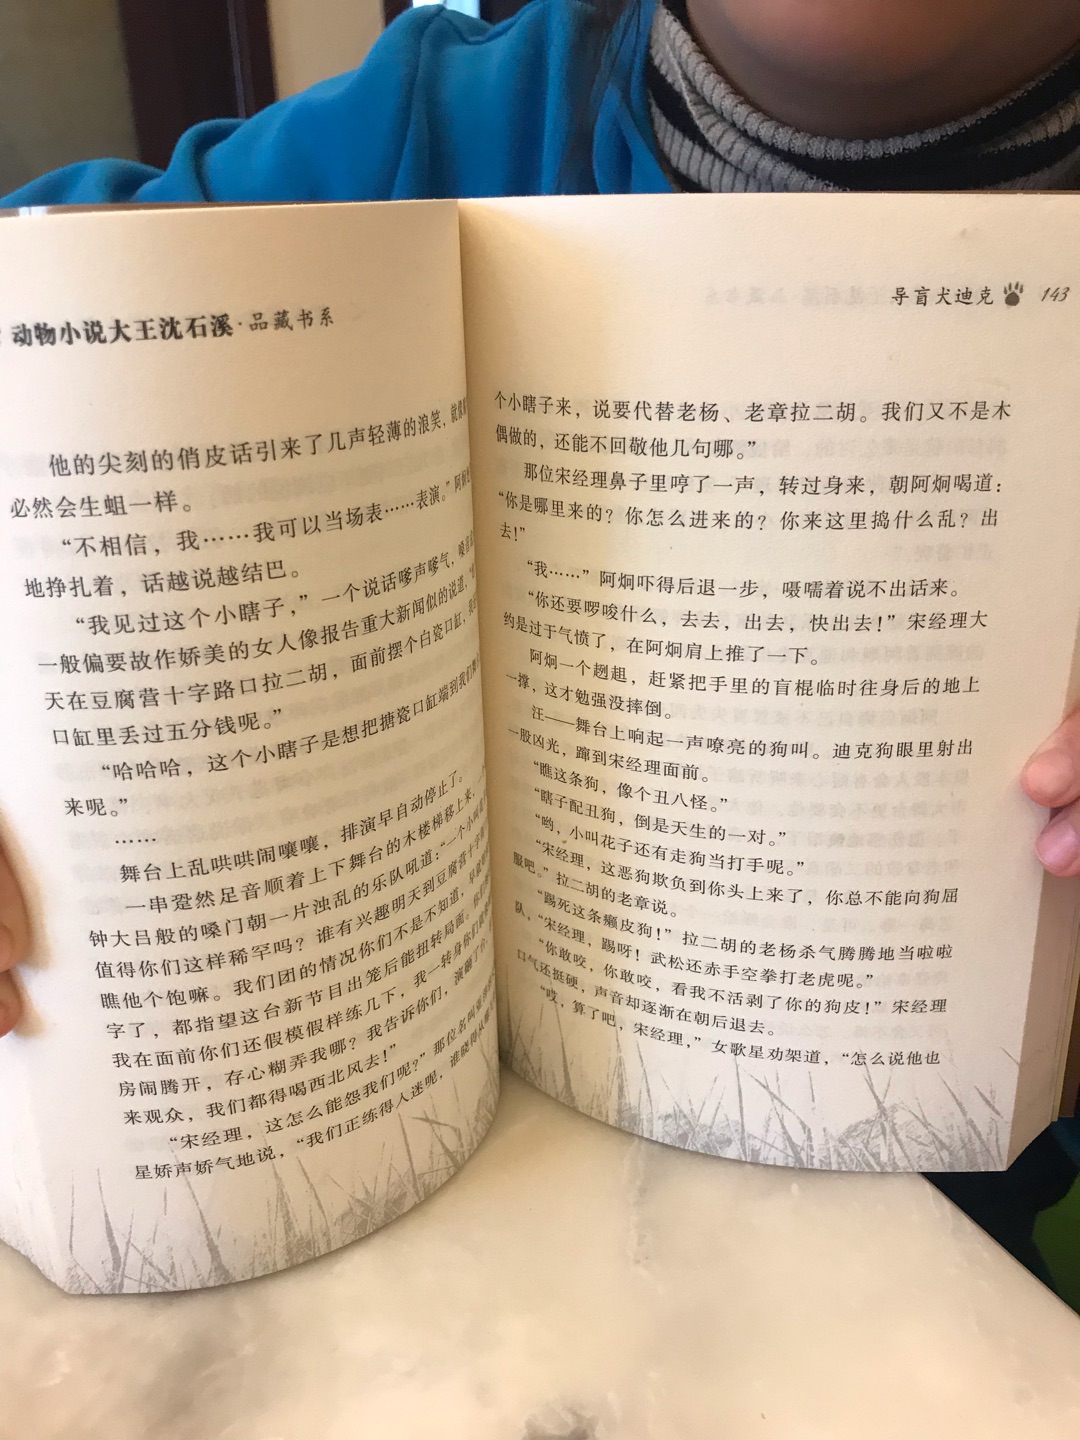 动物小说大王沈石溪·品藏书系
他的尖刻的俏皮话引来了几声轻薄的浪笑，就像
必然会生蛆一样。
“不相信，我……我可以当场表……表演。”阿炯
地挣扎着，话越说越结巴。
“我见过这个小瞎子，”一个说话嗲声嗲气，嗓
一般偏要故作娇美的女人像报告重大新闻似的说道，
天在豆腐营十字路口拉二胡，面前摆个白瓷口缸，我
口缸里丢过五分钱呢。”
“哈哈哈，这个小瞎子是想把搪瓷口缸端到我们舞
来呢。”
……
舞台上乱哄哄闹嚷嚷，排演早自动停止了。
一串跫然足音顺着上下舞台的木楼梯移上来，一
钟大吕般的嗓门朝一片浊乱的乐队吼道：“一个小叫花
值得你们这样稀罕吗？谁有兴趣明天到豆腐营十字路
瞧他个饱嘛。我们团的情况你们不是不知道，早就
字了，都指望这台新节目出笼后能扭转局面。你们
我在面前你们还假模假样练几下，我一转身你们就
房闹腾开，存心糊弄我哪？我告诉你们，演砸了
来观众，我们都得喝西北风去！”
“宋经理，这怎么能怨我们呢？”那位名叫
星娇声娇气地说，“我们正练得入迷呢，谁晓得从哪
导盲犬迪克 143
个小瞎子来，说要代替老杨、老章拉二胡。我们又不是木
偶做的，还能不回敬他几句哪。”
那位宋经理鼻子里哼了一声，转过身来，朝阿炯喝道：
“你是哪里来的？你怎么进来的？你来这里捣什么乱？出
去！”
“我……”阿炯吓得后退一步，嗫嚅着说不出话来。
“你还要啰唆什么，去去，出去，快出去！”宋经理大
约是过于气愤了，在阿炯肩上推了一下。
阿炯一个趔趄，赶紧把手里的盲棍临时往身后的地上
一撑，这才勉强没摔倒。
汪——舞台上响起一声嘹亮的狗叫。迪克狗眼里射出
一股凶光，蹿到宋经理面前。
“瞧这条狗，像个丑八怪。”
“瞎子配丑狗，倒是天生的一对。”
“哟，小叫花子还有走狗当打手呢。”
“宋经理，这恶狗欺负到你头上来了，你总不能向狗屈
服吧。”拉二胡的老章说。
“踢死这条癞皮狗！”拉二胡的老杨杀气腾腾地当啦啦
队，“宋经理，踢呀！武松还赤手空拳打老虎呢。”
“你敢咬，你敢咬，看我不活剥了你的狗皮！”宋经理
口气还挺硬，声音却逐渐在朝后退去。
“哎，算了吧，宋经理，”女歌星劝架道，“怎么说他也